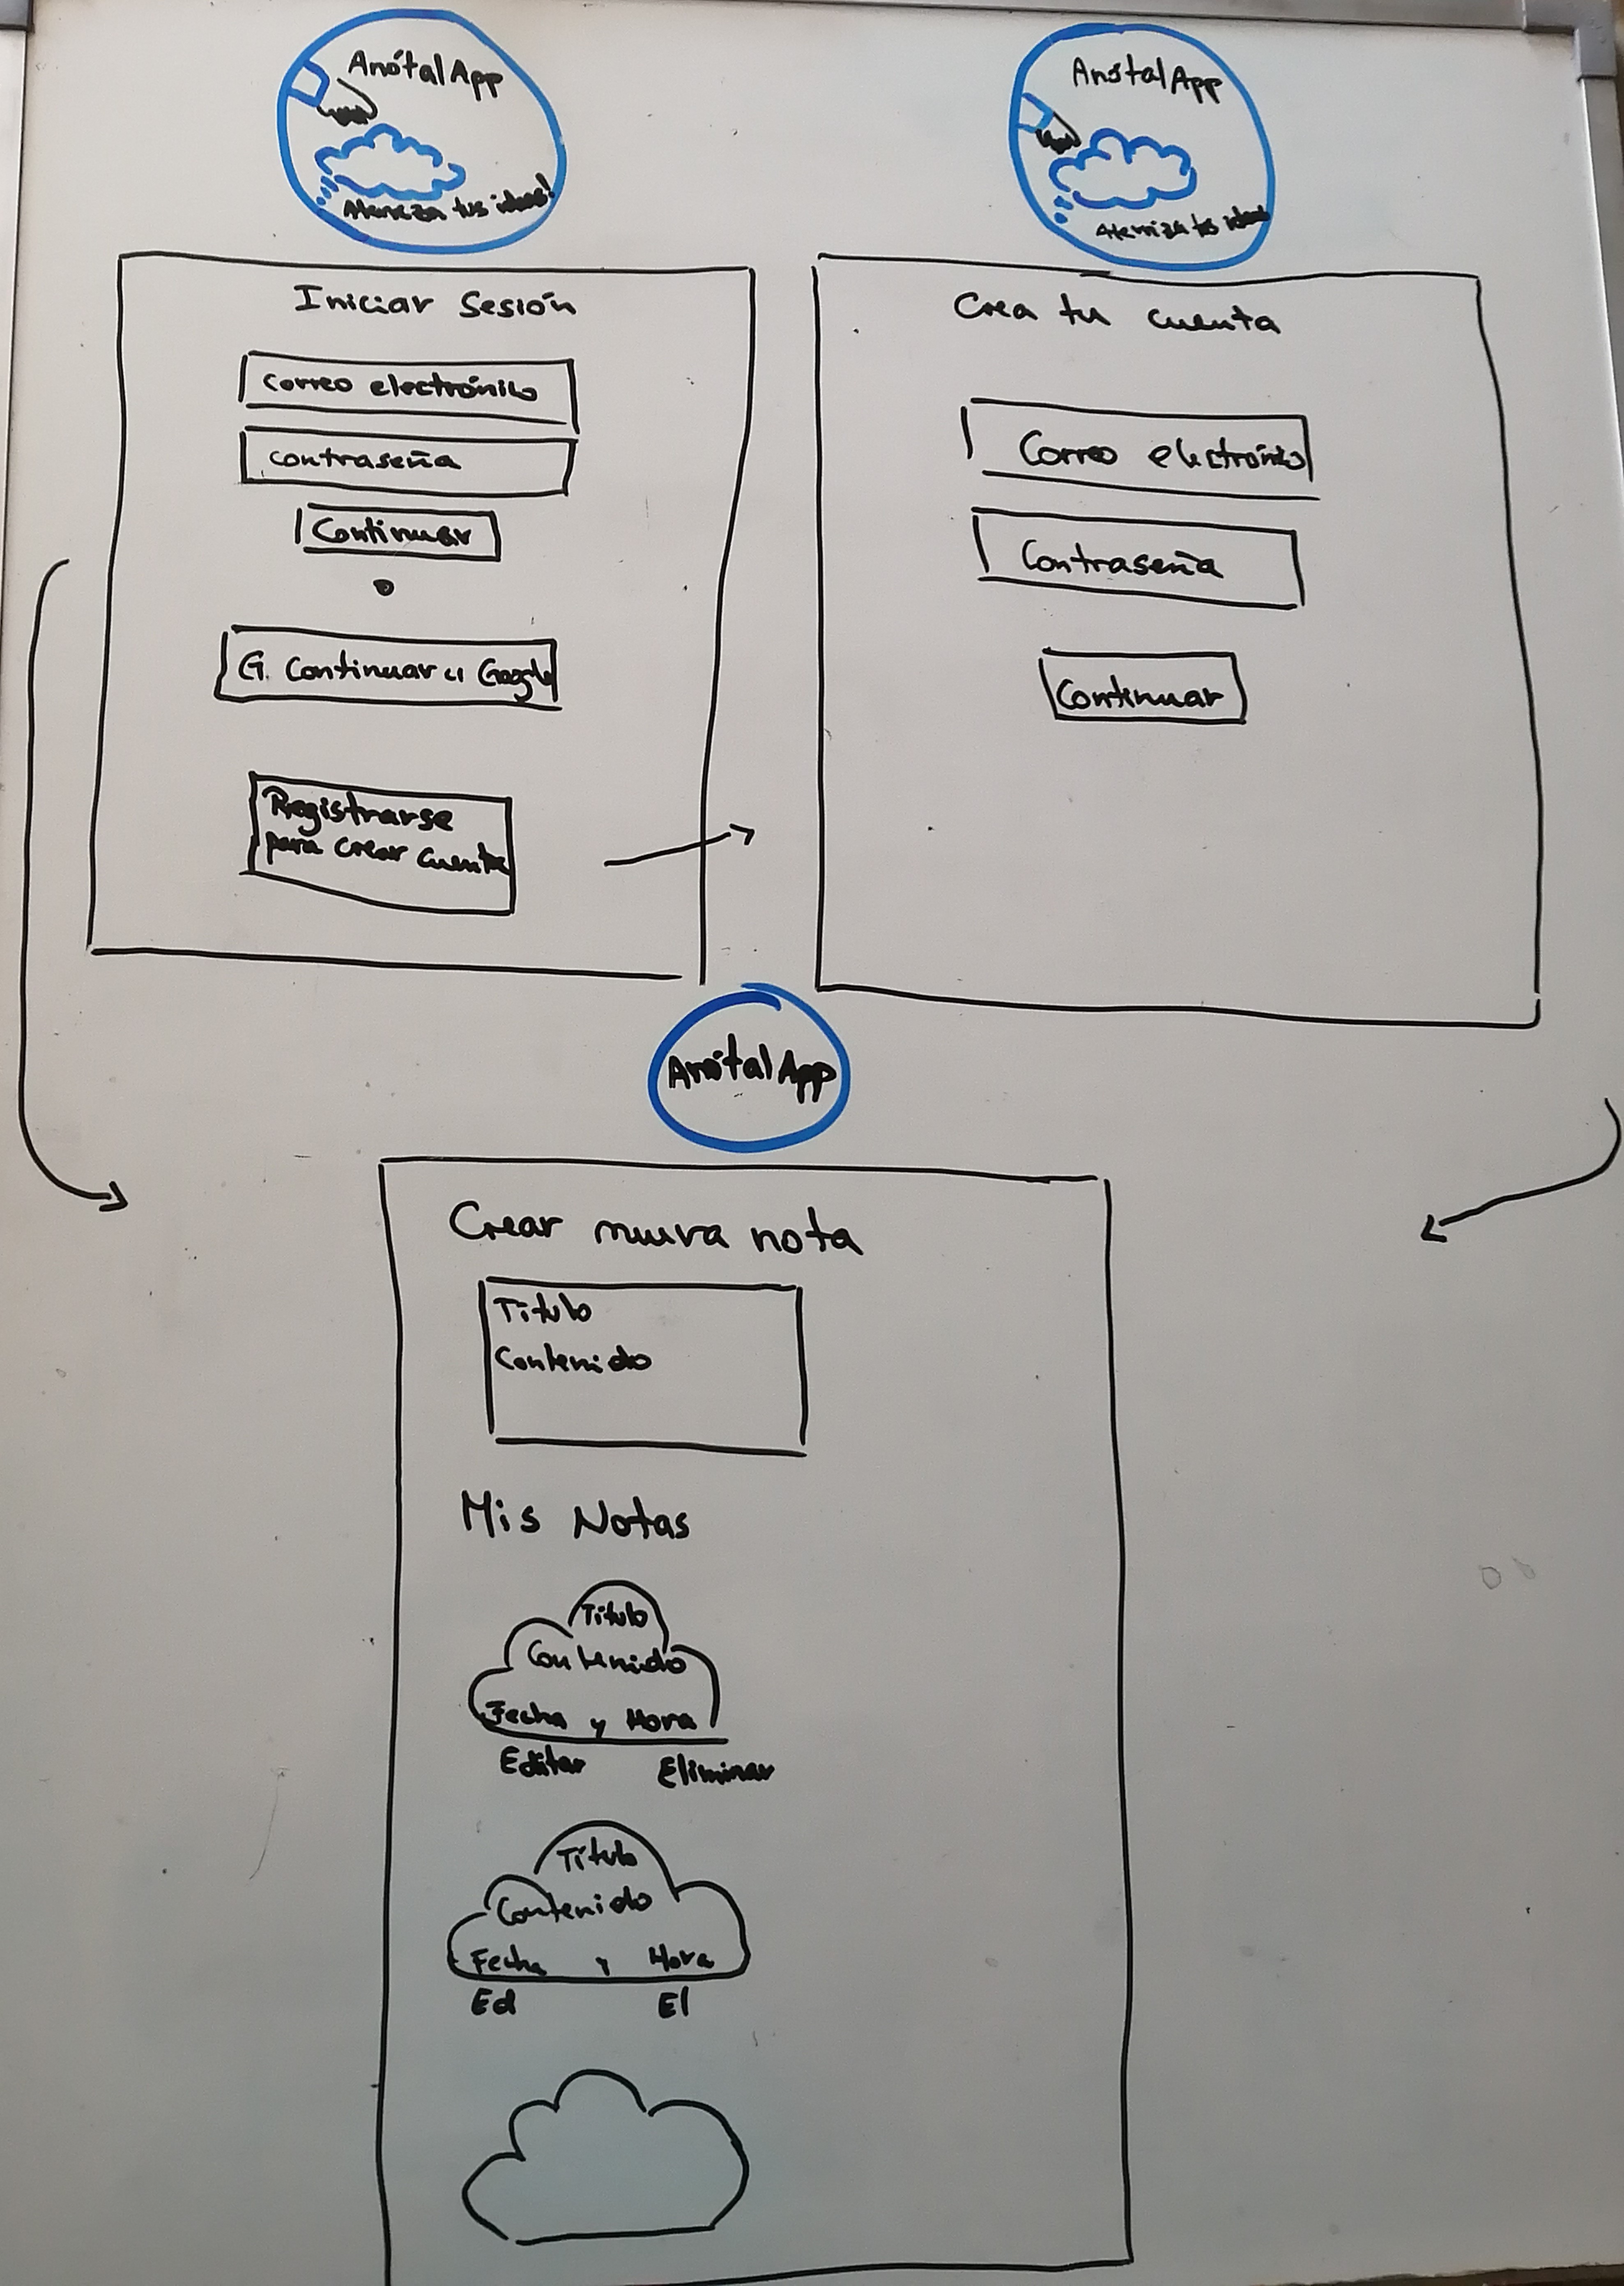 AnótalApp
Aterriza tus ideas!
Iniciar Sesión
Correo electrónico
contraseña
Continuar
o
G. Continuar c/ Google
Registrarse
para crear cuenta
AnótalApp
Aterriza tus ideas
Crea tu cuenta
Correo electrónico
Contraseña
Continuar
AnótalApp
Crear nueva nota
Título
Contenido
Mis Notas
Título
Contenido
Fecha y Hora
Editar Eliminar
Título
Contenido
Fecha y Hora
Ed El